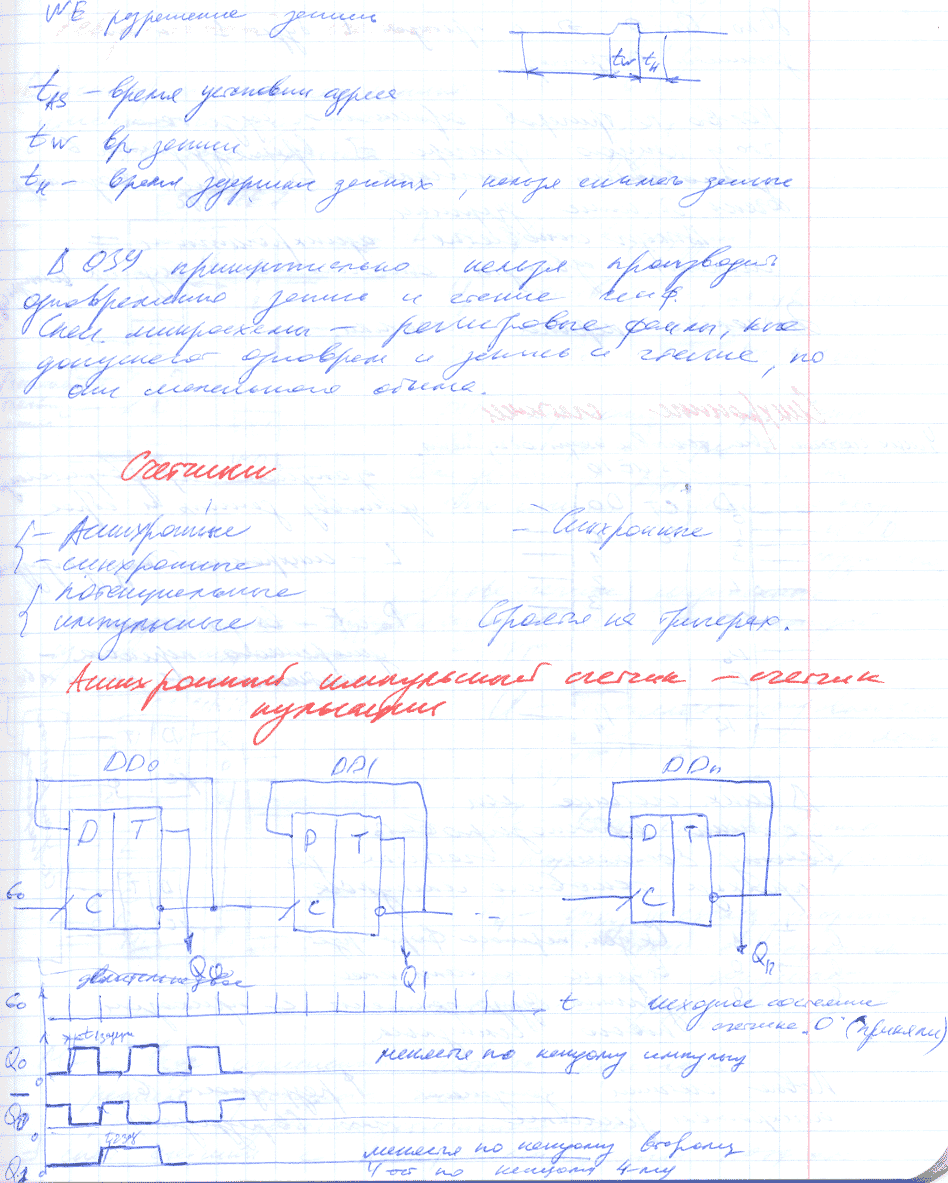 WE разрешение записи
tw tн
tAS – время установки адреса
tw вр. записи
tн – время задержки данных, нельзя снимать данные
В ОЗУ принципиально нельзя производить
одновременно запись и чтение инф.
Спец. микросхемы – регистровые файлы, кое
допускают одноврем и запись и чтение, но
они маленького объема.
Счетчики
– Асинхронные
– Синхронные
– синхронные
потенциальные
импульсные
Строятся на тригерах.
Асинхронный импульсный счетчик – счетчик
пульсации
DD0 DD1 DDn
D T D T D T
C C C
Q0 Q1 Qn
t исходное состояние
счетчика „0" (приняли)
Q0 меняется по каждому импульсу
0
Q0
0
Q1 меняется по каждому второму
0 по каждому 4-му